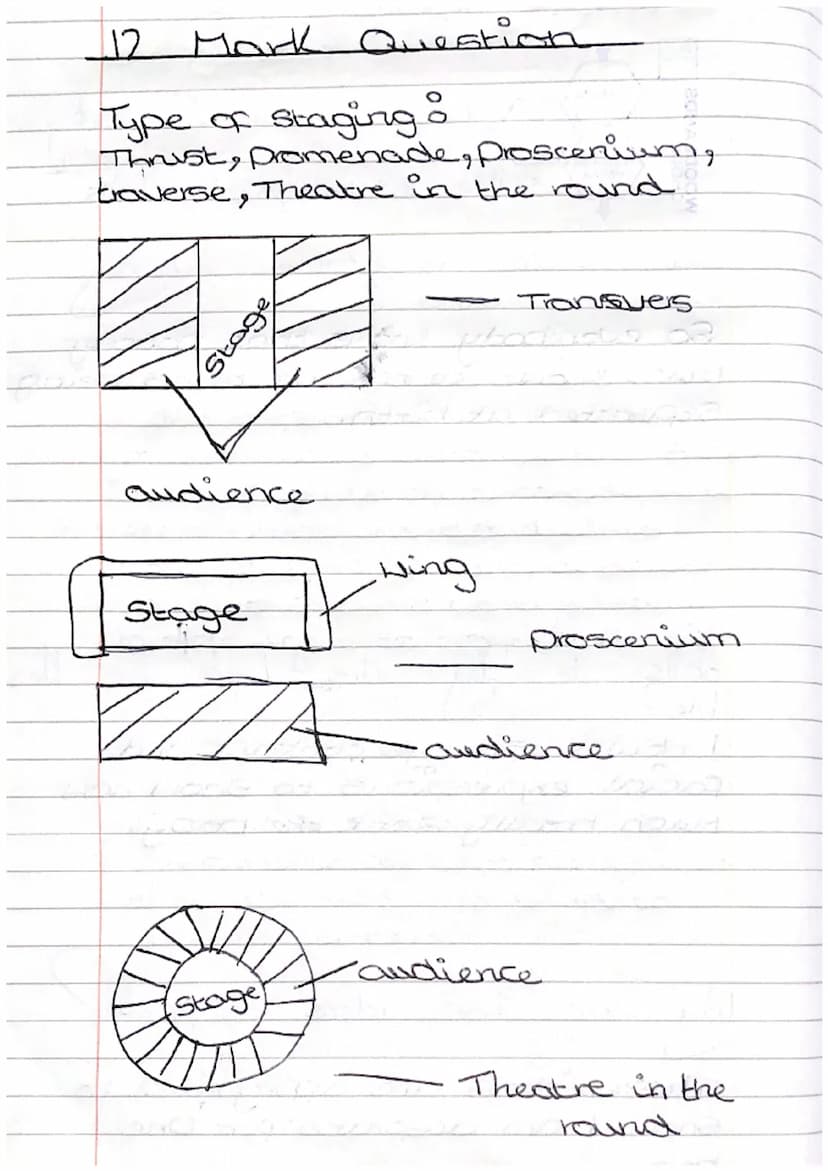 12 Mark Question
Type of staging:
Thrust, Promenade, Proscenium,
traverse, Theatre in the round
Stage
Transvers
audience
Wing
Stage
Proscenium
audience
audience
Stage
Theatre in the
round